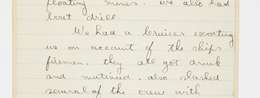 floating mines. We also had
boat drill
We had a cruiser escorting
us on account of the ships
firemen. they all got drunk
and mutinied. also slashed
several of the crew with